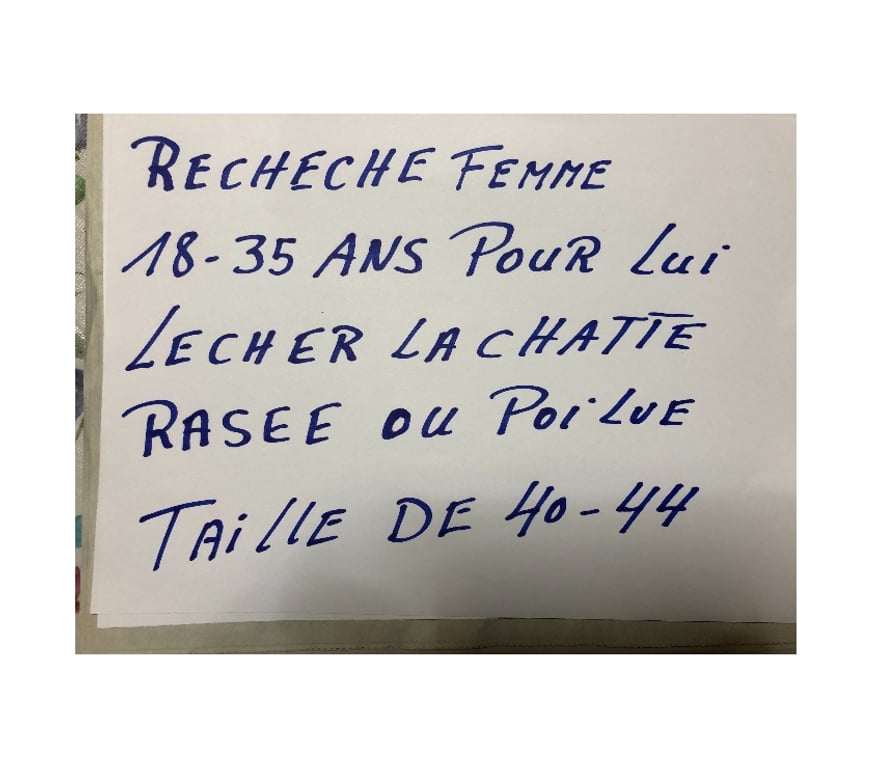 RECHECHE FEMME
18-35 ANS POUR LUI
LECHER LA CHATTE
RASEE OU POILUE
TAILLE DE 40-44